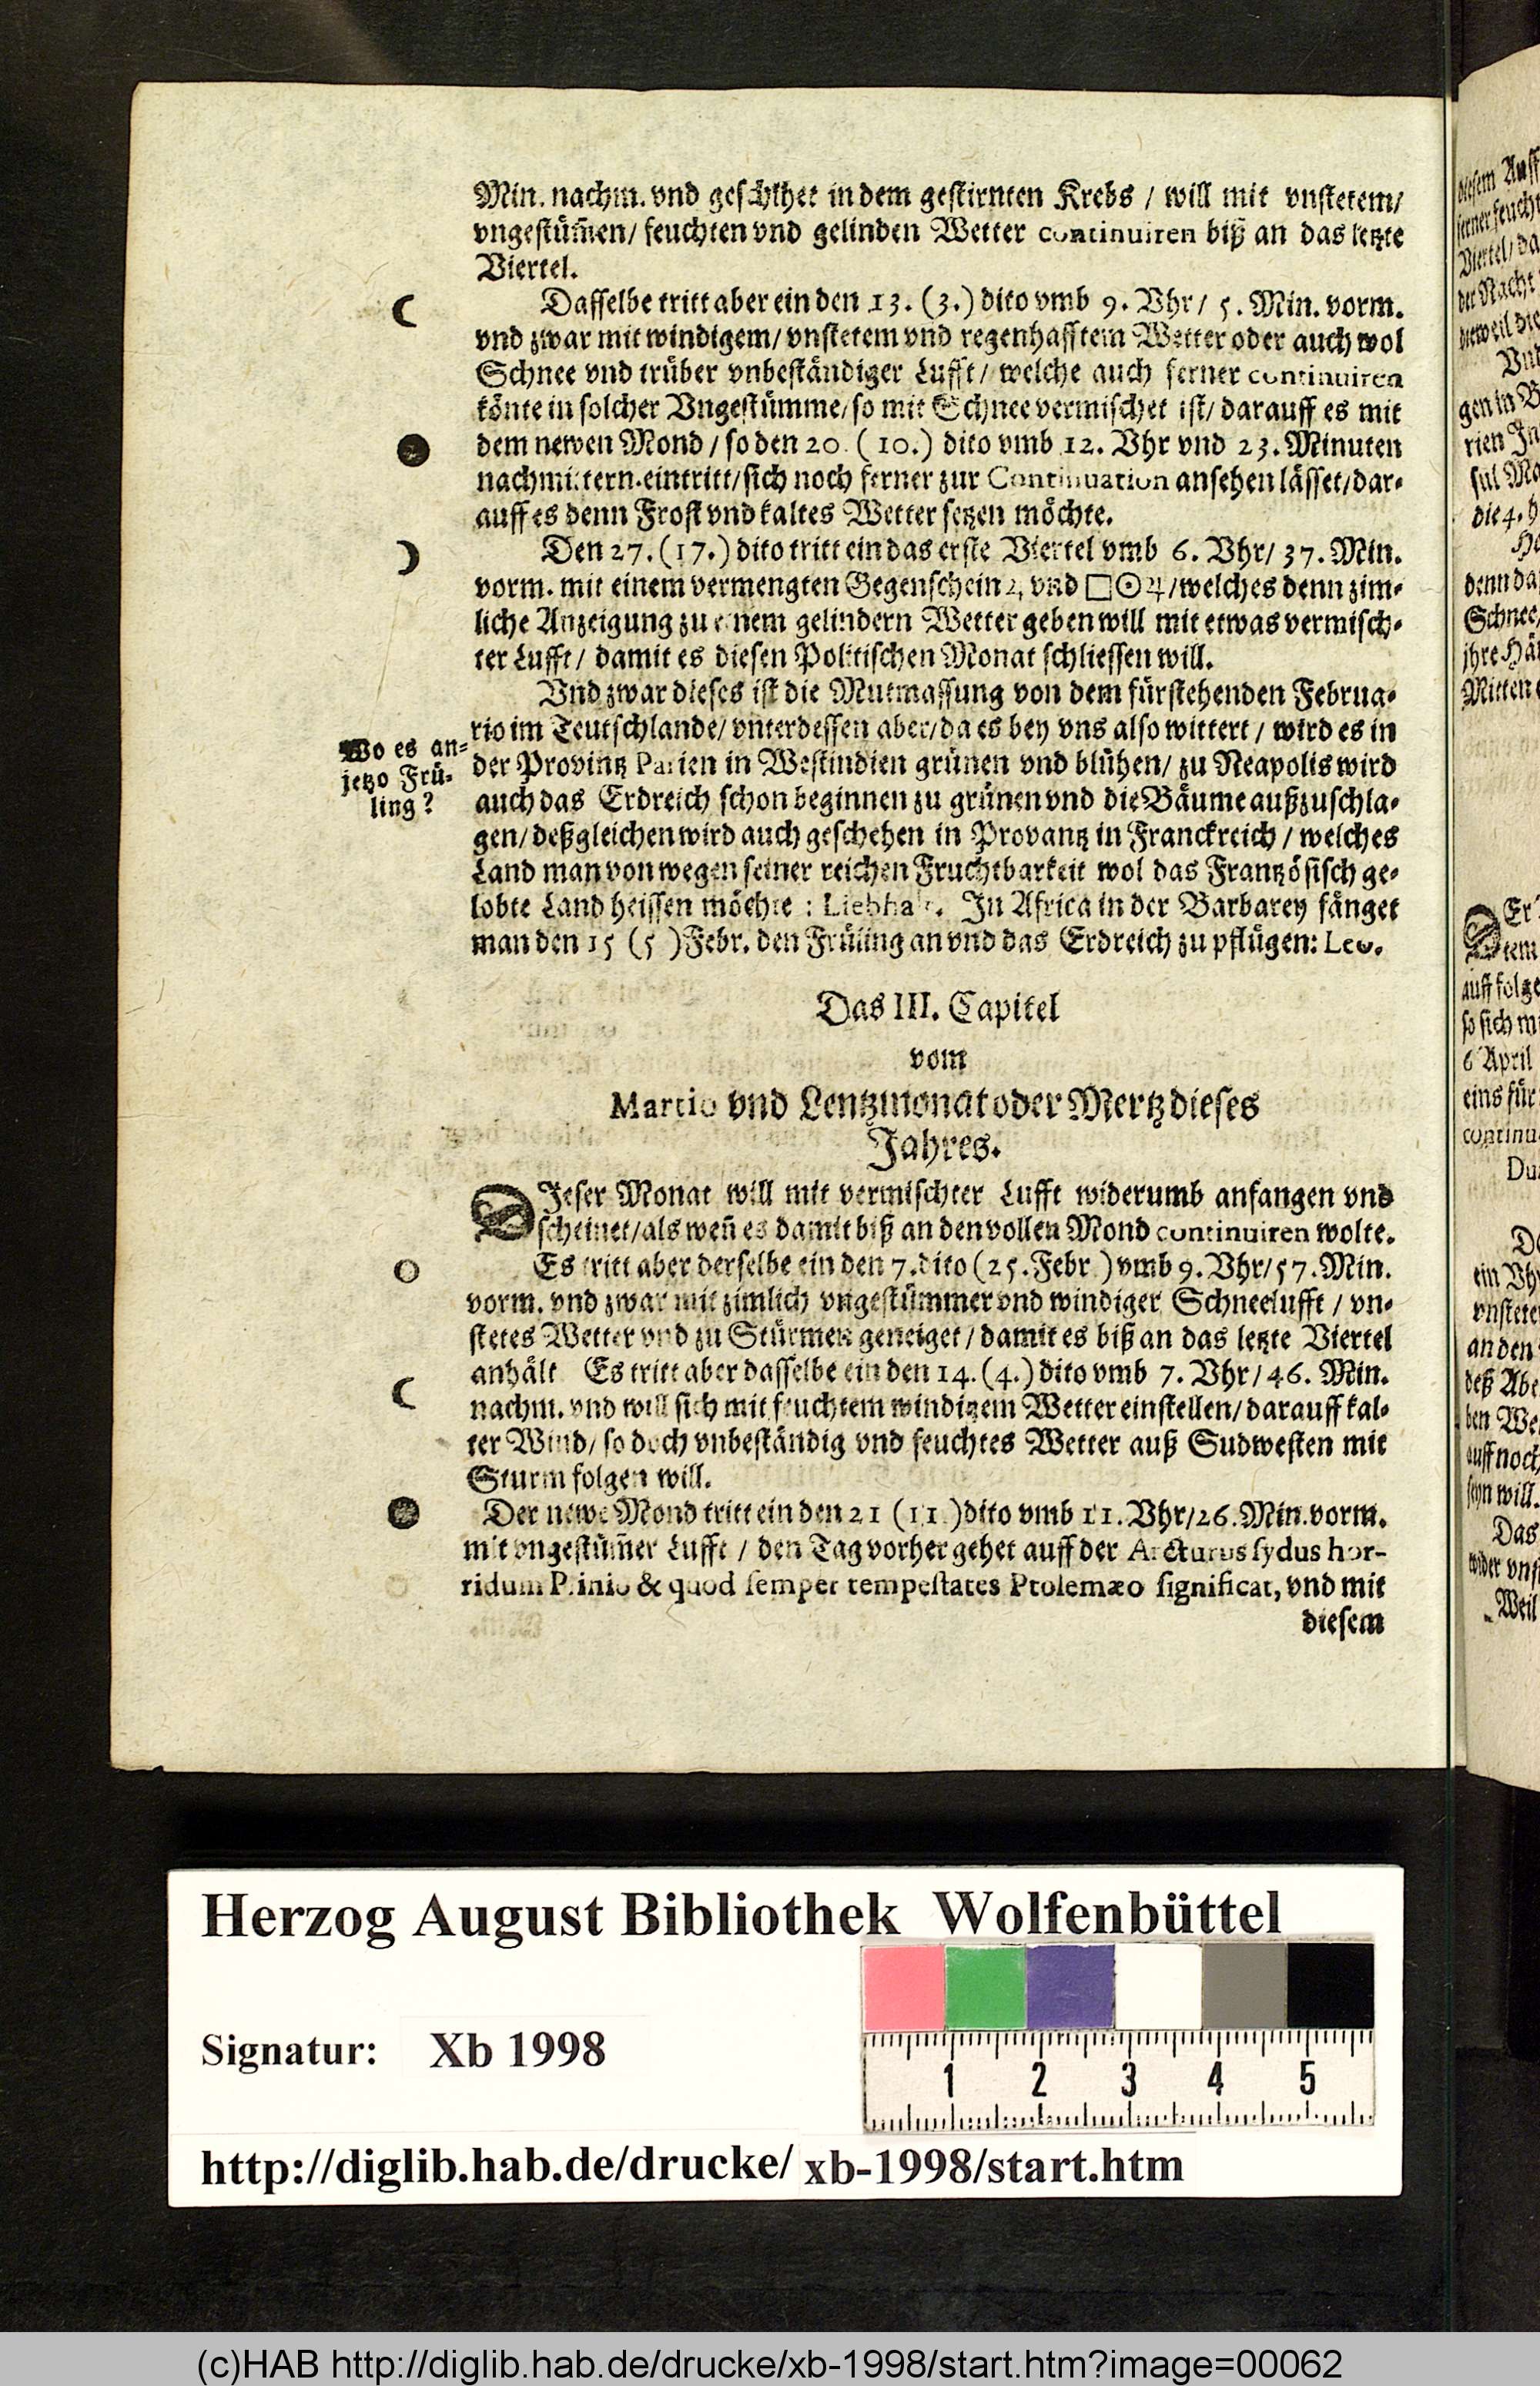 Min. nachm. vnd geschihet in dem gestirnten Krebs / will mit vnstetem/
vngestüm̃en/ feuchten vnd gelinden Wetter continuiren biß an das letzte
Viertel.
☾ Dasselbe tritt aber ein den 13. (3.) dito vmb 9. Vhr/ 5. Min. vorm.
vnd zwar mit windigem/ vnstetem vnd regenhafftem Wetter oder auch wol
Schnee vnd trüber vnbeständiger Lufft/ welche auch ferner continuiren
könte in solcher Vngestümme/ so mit Schnee vermischet ist/ darauff es mit
● dem newen Mond / so den 20. (10.) dito vmb 12. Vhr vnd 23. Minuten
nachmittern. eintritt/ sich noch ferner zur Continuation ansehen lässet/ dar-
auff es denn Frost vnd kaltes Wetter setzen möchte.
☽ Den 27. (17.) dito tritt ein das erste Viertel vmb 6. Vhr/ 37. Min.
vorm. mit einem vermengten Gegenschein vnd □☉♃/ welches denn zim-
liche Anzeigung zu einem gelindern Wetter geben will mit etwas vermisch-
ter Lufft/ damit es diesen Politischen Monat schliessen will.
Vnd zwar dieses ist die Mutmassung von dem fürstehenden Februa-
rio im Teutschlande/ vnterdessen aber/ da es bey vns also wittert / wird es in
Wo es an-
jetzo Frü-
ling?
der Provintz Parien in Westindien grünen vnd blühen/ zu Neapolis wird
auch das Erdreich schon beginnen zu grünen vnd die Bäume außzuschla-
gen/ deßgleichen wird auch geschehen in Provantz in Franckreich / welches
Land man von wegen seiner reichen Fruchtbarkeit wol das Frantzösisch ge-
lobte Land heissen möchte : Liebhalt. In Africa in der Barbarey fänget
man den 15 (5) Febr. den Früling an vnd das Erdreich zu pflügen: Leo.
Das III. Capitel
vom
Martio vnd Lentzmonat oder Mertz dieses
Jahres.
DIeser Monat will mit vermischter Lufft widerumb anfangen vnd
scheinet/ als weñ es damit biß an den vollen Mond continuiren wolte.
○ Es tritt aber derselbe ein den 7. dito (25. Febr.) vmb 9. Vhr/ 57. Min.
vorm. vnd zwar mit zimlich vngestümmer vnd windiger Schneelufft / vn-
stetes Wetter vnd zu Stürmen geneiget / damit es biß an das letzte Viertel
☾ anhält Es tritt aber dasselbe ein den 14. (4.) dito vmb 7. Vhr/ 46. Min.
nachm. vnd will sich mit feuchtem windigem Wetter einstellen/ darauff kal-
ter Wind/ so doch vnbeständig vnd feuchtes Wetter auß Sudwesten mit
Sturm folgen will.
● Der newe Mond tritt ein den 21 (11.) dito vmb 11. Vhr/ 26. Min. vorm.
mit vngestüm̃er Lufft / den Tag vorher gehet auff der Arcturus sydus hor-
ridum Plinio & quod semper tempestates Ptolemæo significat, vnd mit
diesem
Herzog August Bibliothek Wolfenbüttel
Signatur: Xb 1998
1 2 3 4 5
http://diglib.hab.de/drucke/xb-1998/start.htm
(c)HAB http://diglib.hab.de/drucke/xb-1998/start.htm?image=00062